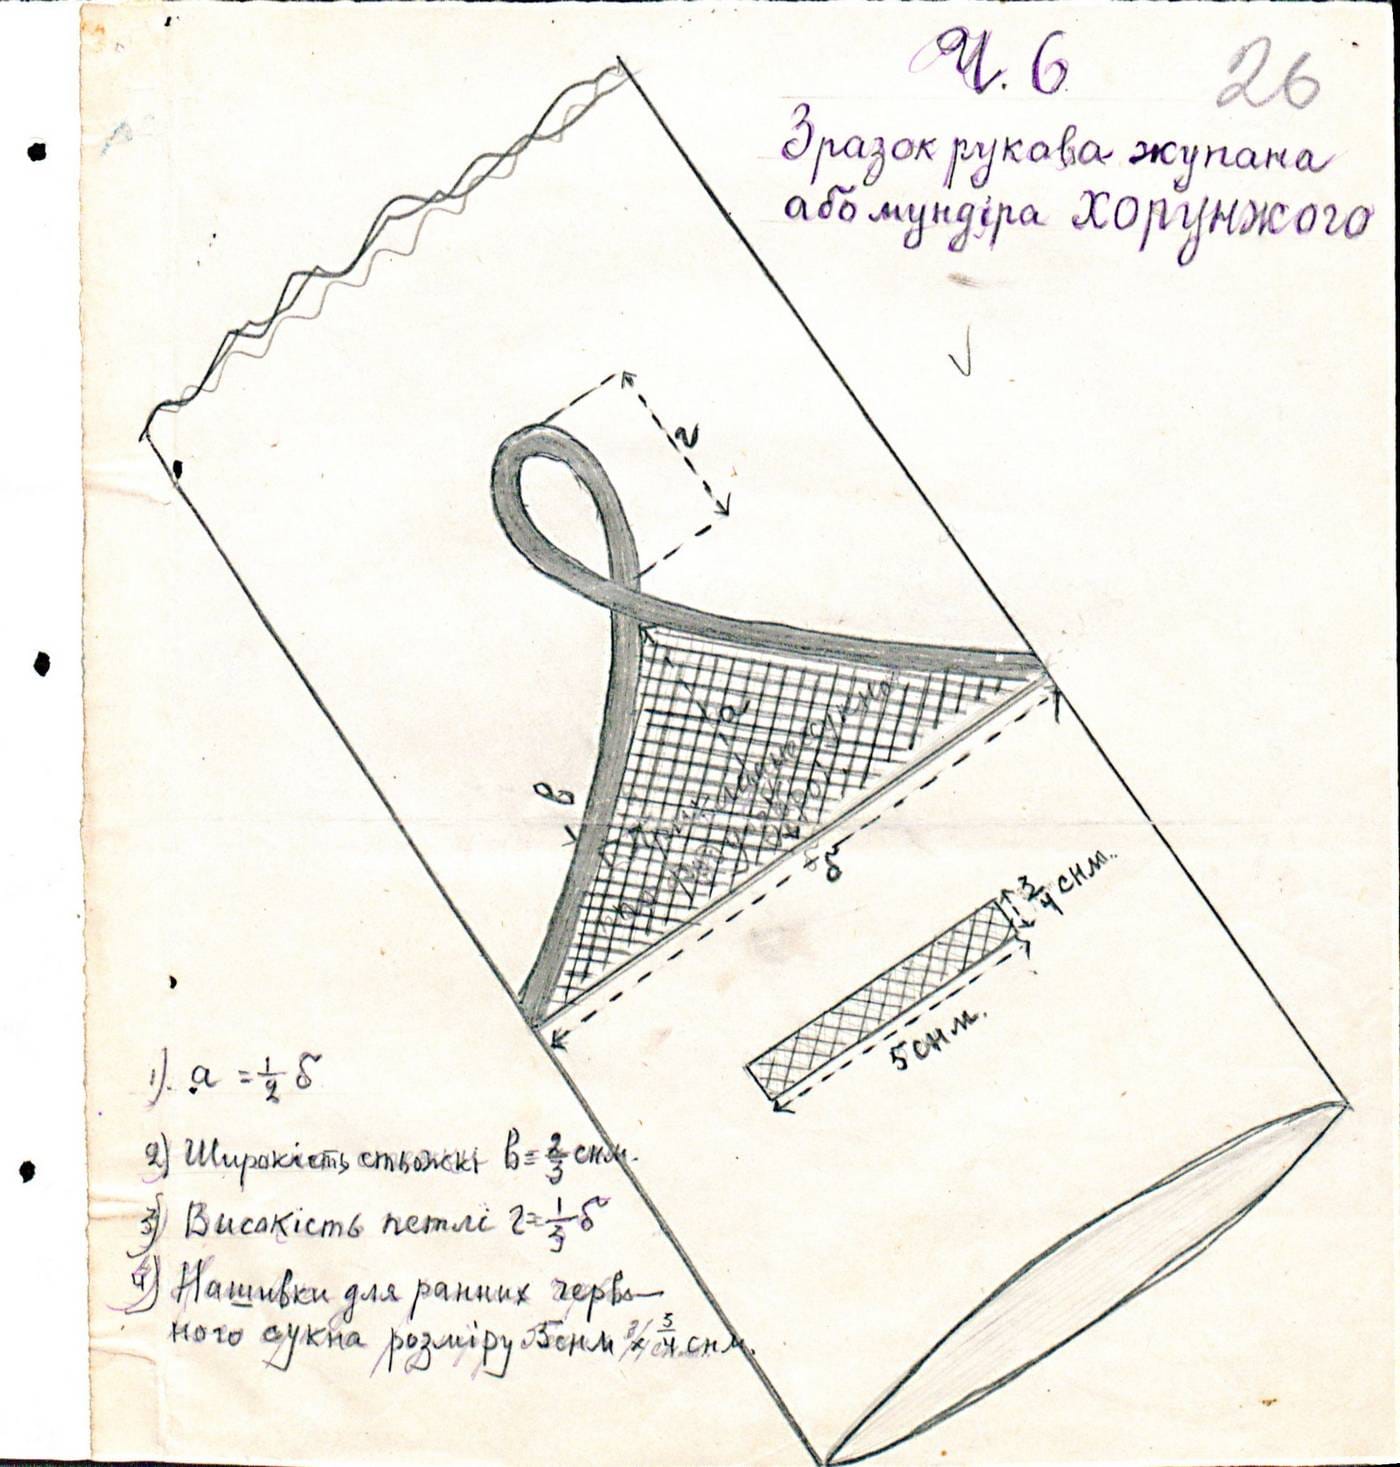 Ч. 6
26
Зразок рукава жупана
або мундіра ХОРУНЖОГО
г
а
в
Прикладне сукно
по роду зброї.
б
3/4 снм.
5 снм.
1). а = 1/2 б
2) Широкість стьожкі в = 2/3 снм.
3) Високість петлі г = 1/3 б
4) Нашивки для ранних черво-
ного сукна розміру 5снм х 3/4 снм.